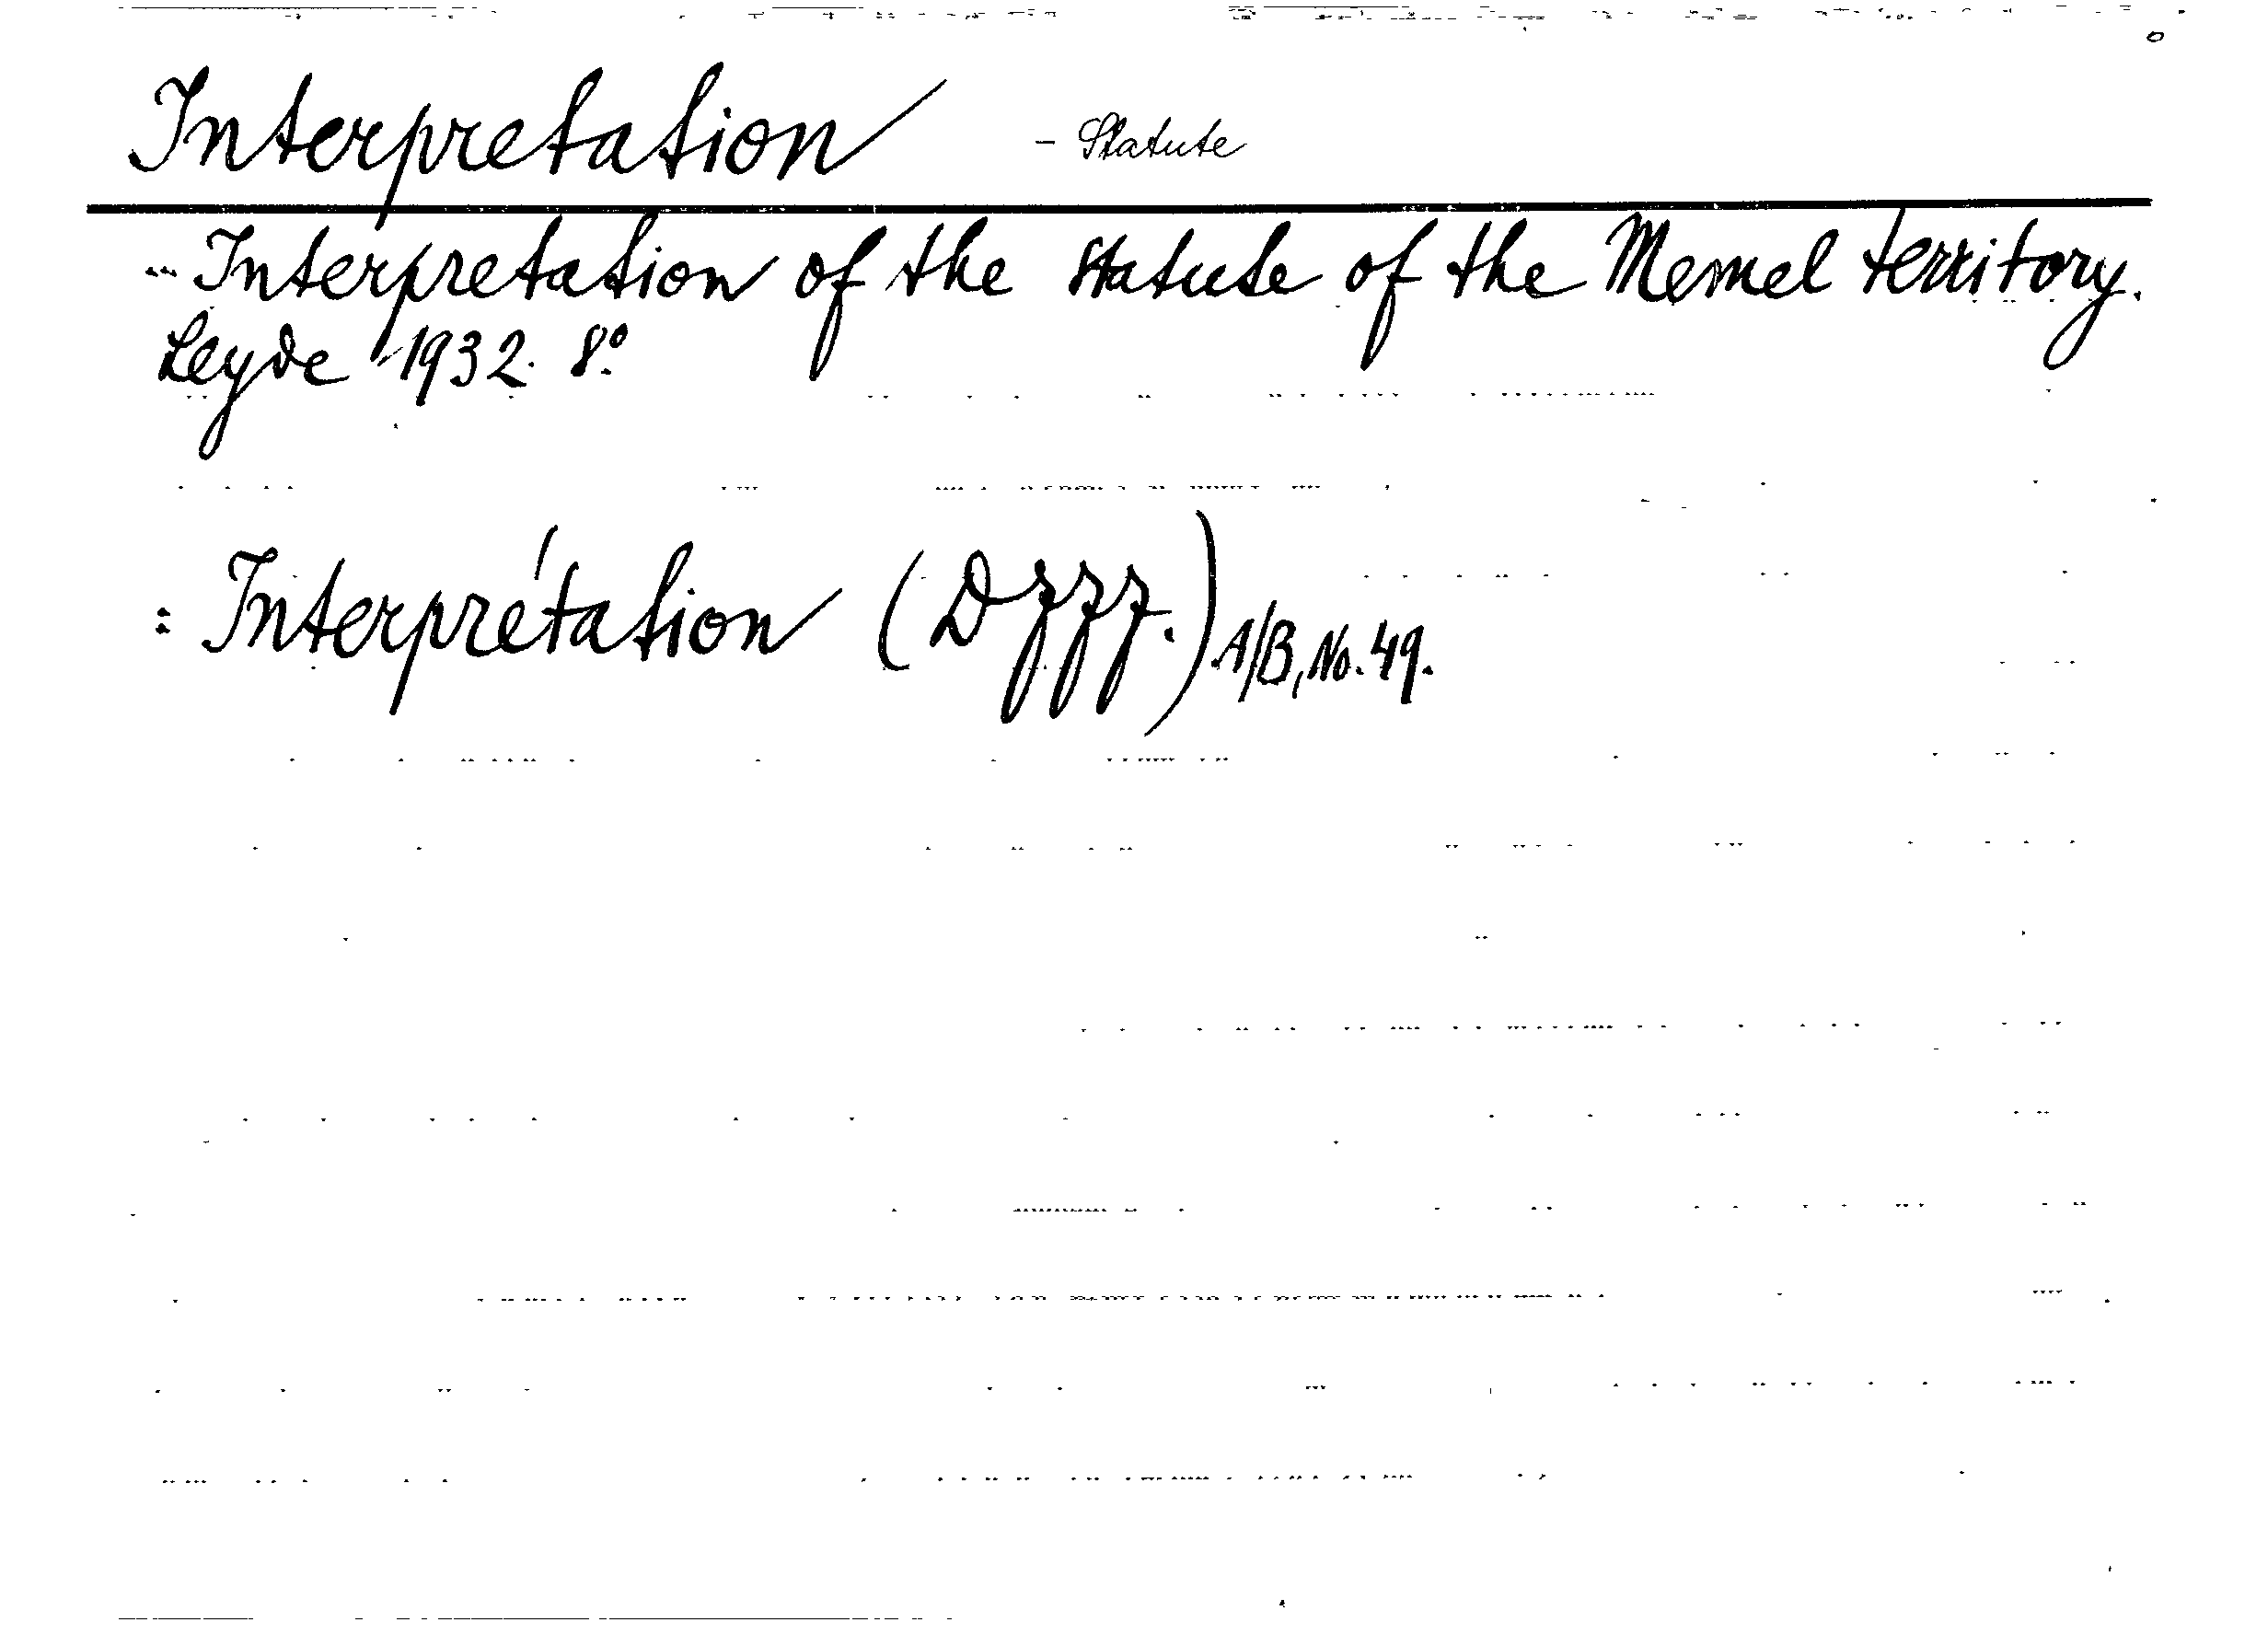 Interpretation - Statute
-- Interpretation of the statute of the Memel territory.
Leyde 1932. 8°.
: Interprétation (Dzzz.) A/B, No. 49.